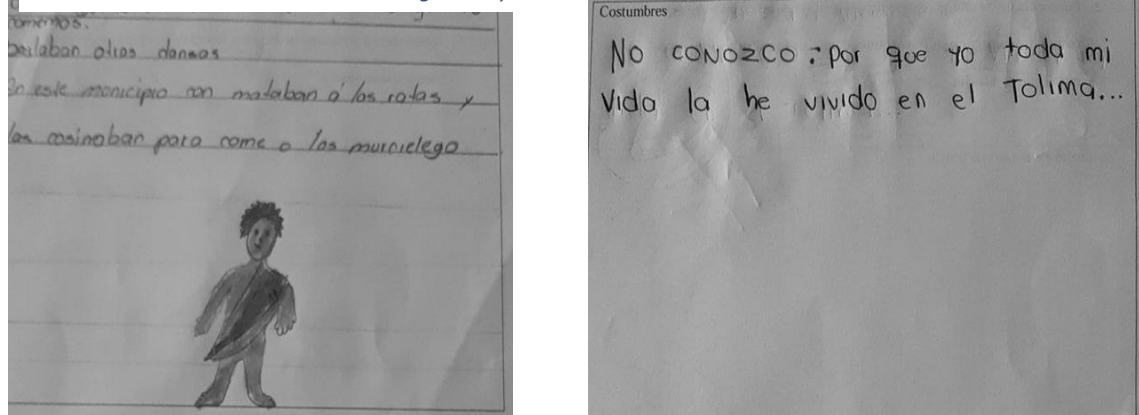 comemos.
bailaban otras dansas
En este monicipio con mataban a las ratas y
las cosinaban para come o las murcielego
Costumbres
No CONOZCO : por que yo toda mi
vida la he vivido en el Tolima...